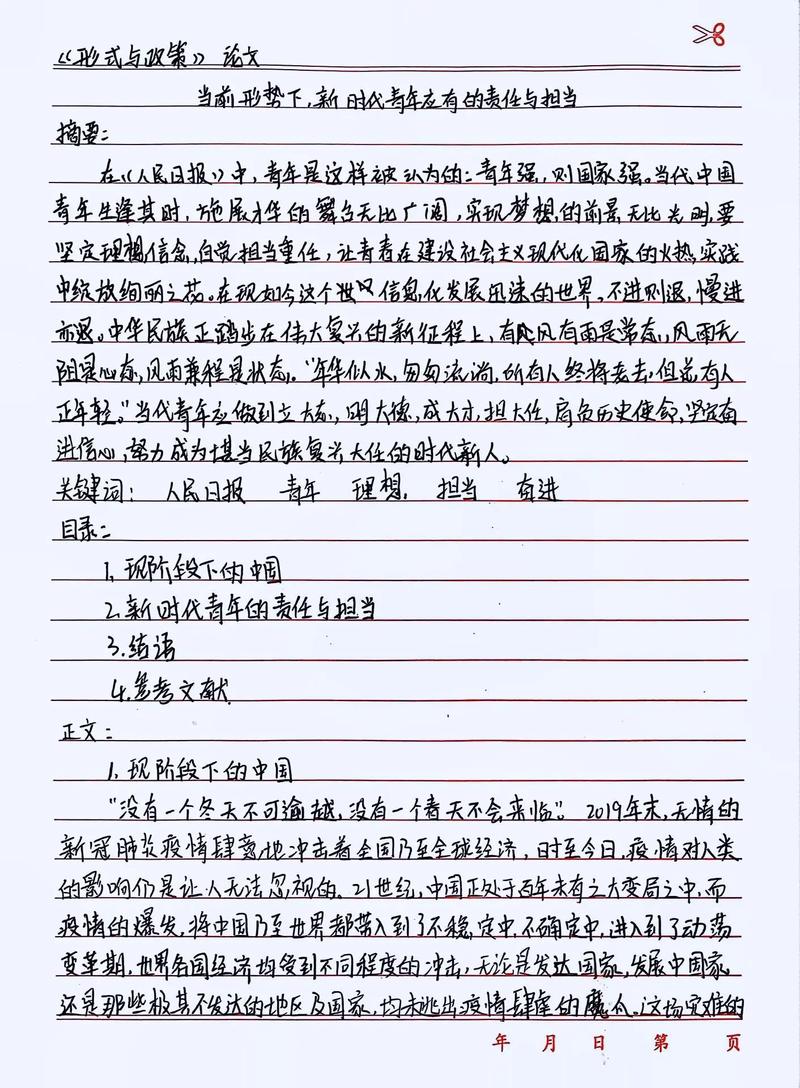 《形式与政策》 论文
当前形势下,新时代青年应有的责任与担当
摘要:
在《人民日报》中,青年是这样被认为的:青年强,则国家强。当代中国
青年生逢其时,施展才华的舞台无比广阔,实现梦想的前景无比光明,要
坚定理想信念,自觉担当重任,让青春在建设社会主义现代化国家的火热实践
中绽放绚丽之花。在现如今这个世 信息化发展迅速的世界,不进则退,慢进
亦退。中华民族正踏步在伟大复兴的新征程上,有风有雨是常态,风雨无
阻是心态,风雨兼程是状态。"年华似水,匆匆流淌,所有人终将老去,但总有人
正年轻。"当代青年应做到立大志,明大德,成大才,担大任,肩负历史使命,坚定奋
进信心,努力成为堪当民族复兴大任的时代新人。
关键词: 人民日报 青年 理想 担当 奋进
目录:
1.现阶段下的中国
2.新时代青年的责任与担当
3.结语
4.参考文献
正文:
1.现阶段下的中国
"没有一个冬天不可逾越,没有一个春天不会来临"。2019年末,无情的
新冠肺炎疫情肆意地冲击着全国乃至全球经济,时至今日,疫情对人类
的影响仍是让人无法忽视的。21世纪,中国正处于百年未有之大变局之中,而
疫情的爆发,将中国乃至世界都带入到了不稳定中,不确定中,进入到了动荡
变革期,世界各国经济均受到不同程度的冲击,无论是发达国家,发展中国家
还是那些极其不发达的地区及国家,均未逃出疫情肆虐的魔爪。这场灾难的
年 月 日 第 页